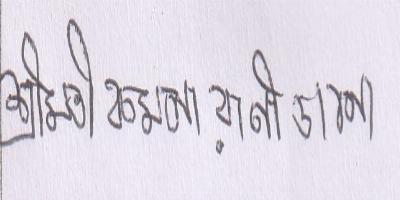 শ্রীমতী কমলা রানী দাস